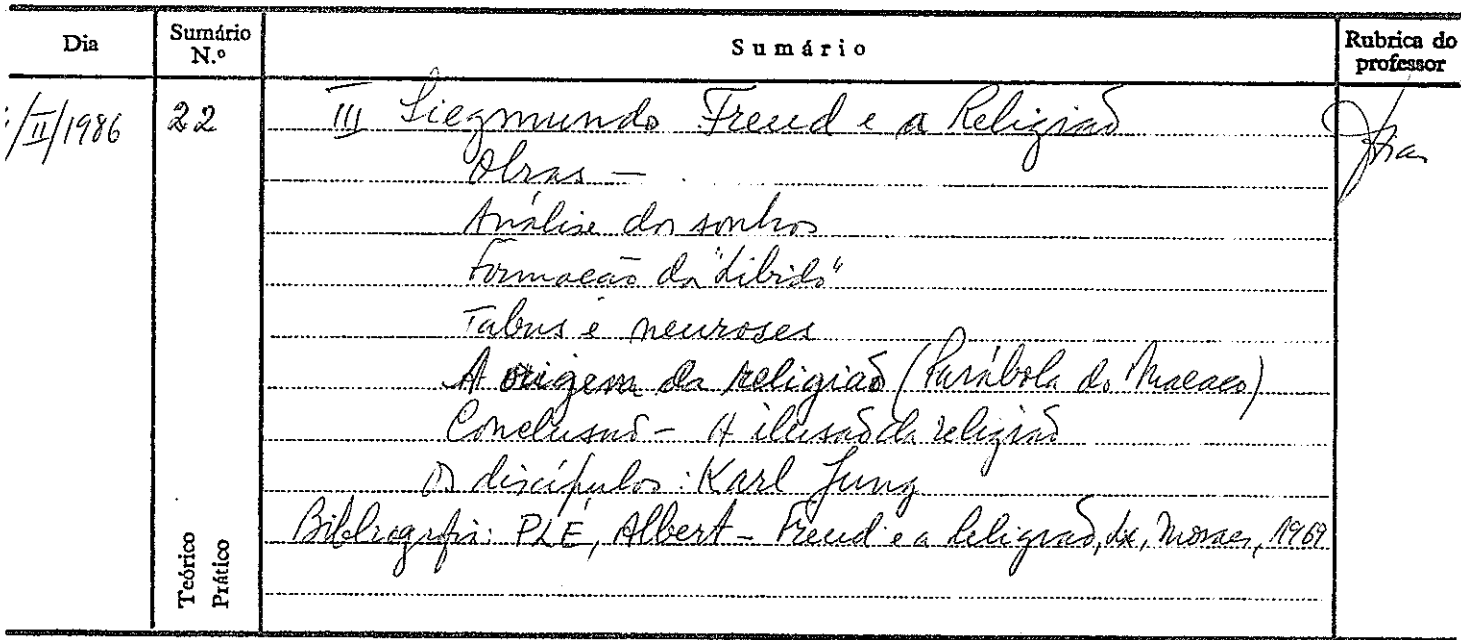 Dia Sumário N.º Sumário Rubrica do professor
/II/1986 22 III Siegmundo Freud e a Religião
Obras —
Análise dos sonhos
Formação da "Libido"
Tabus e neuroses
A origem da religião (Parábola do Macaco)
Conclusão - A ilusão da religião
Os discípulos: Karl Jung
Bibliografia: PLÉ, Albert - Freud e a Religião, Lx, Moraes, 1969
Teórico
Prático